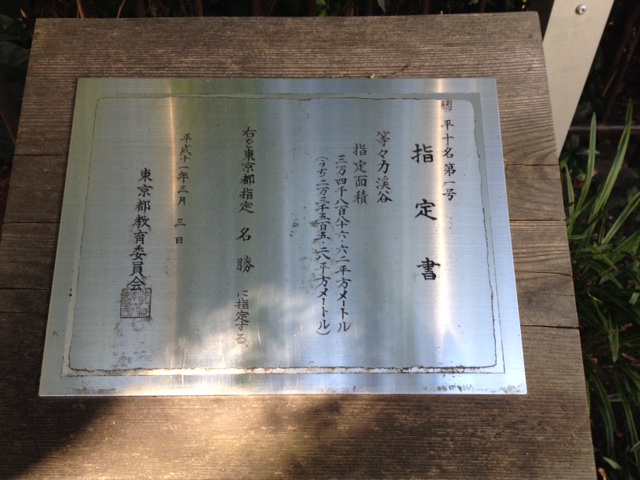 平十名第一号
指定書
等々力渓谷
指定面積
三万四千八百八十六・六二平方メートル
(うち二万三千五百五・二八平方メートル)
右を東京都指定名勝に指定する。
平成十一年三月三日
東京都教育委員会